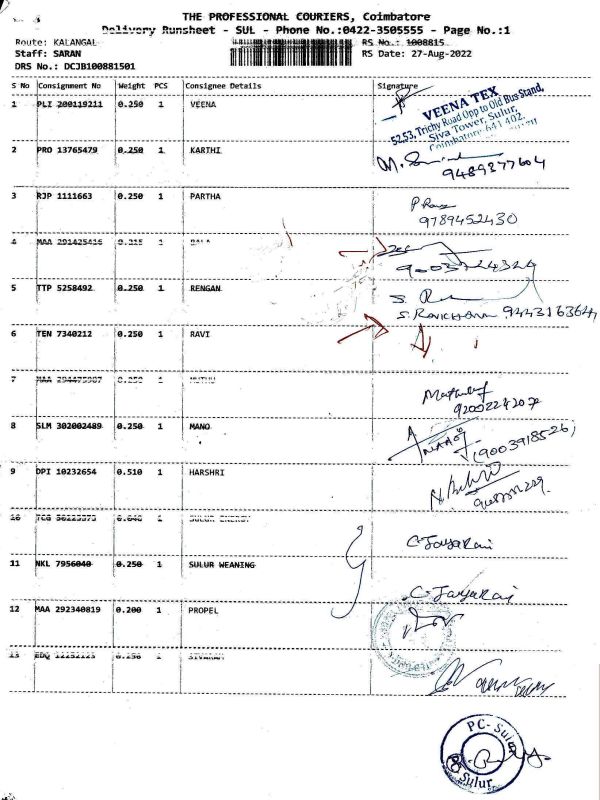 THE PROFESSIONAL COURIERS, Coimbatore
Delivery Runsheet - SUL - Phone No.:0422-3505555 - Page No.:1
Route: KALANGAL
RS No.: 1008815
Staff: SARAN
RS Date: 27-Aug-2022
DRS No.: DCJB100881501
S No Consignment No Weight PCS Consignee Details Signature
1 PLI 200119211 0.250 1 VEENA
VEENA TEX
52,53, Trichy Road Opp to Old Bus Stand,
Siva Tower, Sulur,
Coimbatore 641 402.
2 PRO 13765479 0.250 1 KARTHI
9489377604
3 RJP 1111663 0.250 1 PARTHA
9789452430
4 MAA 291425416 0.215 1 BALA
5 TTP 5258492 0.250 1 RENGAN
6 TEN 7340212 0.250 1 RAVI
7 MAA 1 MUTHU
9200224207
8 SLM 302002489 0.250 1 MANO
9 DPI 10232654 0.510 1 HARSHRI
10 1 SULUR ENERGY
C-Jayakani
11 NKL 7956040 0.250 1 SULUR WEANING
C-Jayakani
12 MAA 292340819 0.200 1 PROPEL
13 EDQ 1 SIVARAM
PC-Sulur
Sulur